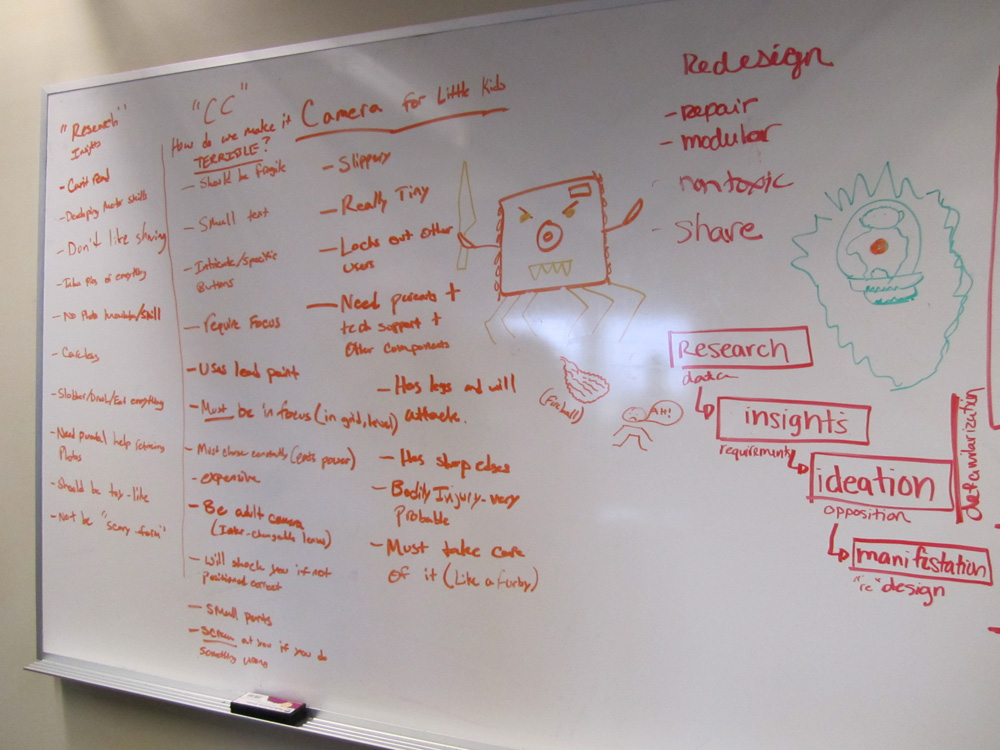 "Research"
Insights
- Can't read
- Developing Motor skills
- Don't like sharing
- Take pics of everything
- No Photo knowledge/skill
- Careless
- Slobber/Drool/Eat everything
- Need parental help retrieving
Photos
- Should be toy-like
- Not be "scary form"
"CC"
How do we make it
TERRIBLE?
Camera for Little Kids
- Should be fragile
- Small text
- Intricate/Specific
Buttons
- require Focus
- Uses lead paint
- Must be in focus (in grid, level)
- Must charge constantly (eats power)
- expensive
- Be adult camera
(Inter-changable lenses)
- Will shock you if not
positioned correct
- Small parts
- Scream at you if you do
something wrong
- Slippery
- Really Tiny
- Locks out other
users
- Need parents +
tech support +
other components
- Has legs and will
attack.
- Has sharp edges
- Bodily Injury - very
Probable
- Must take care
of it (Like a furby)
(fireball)
AH!
Redesign
- repair
- modular
- nontoxic
- share
Research
data
insights
requirements
ideation
opposition
manifistation
"re" design
defamiliarization